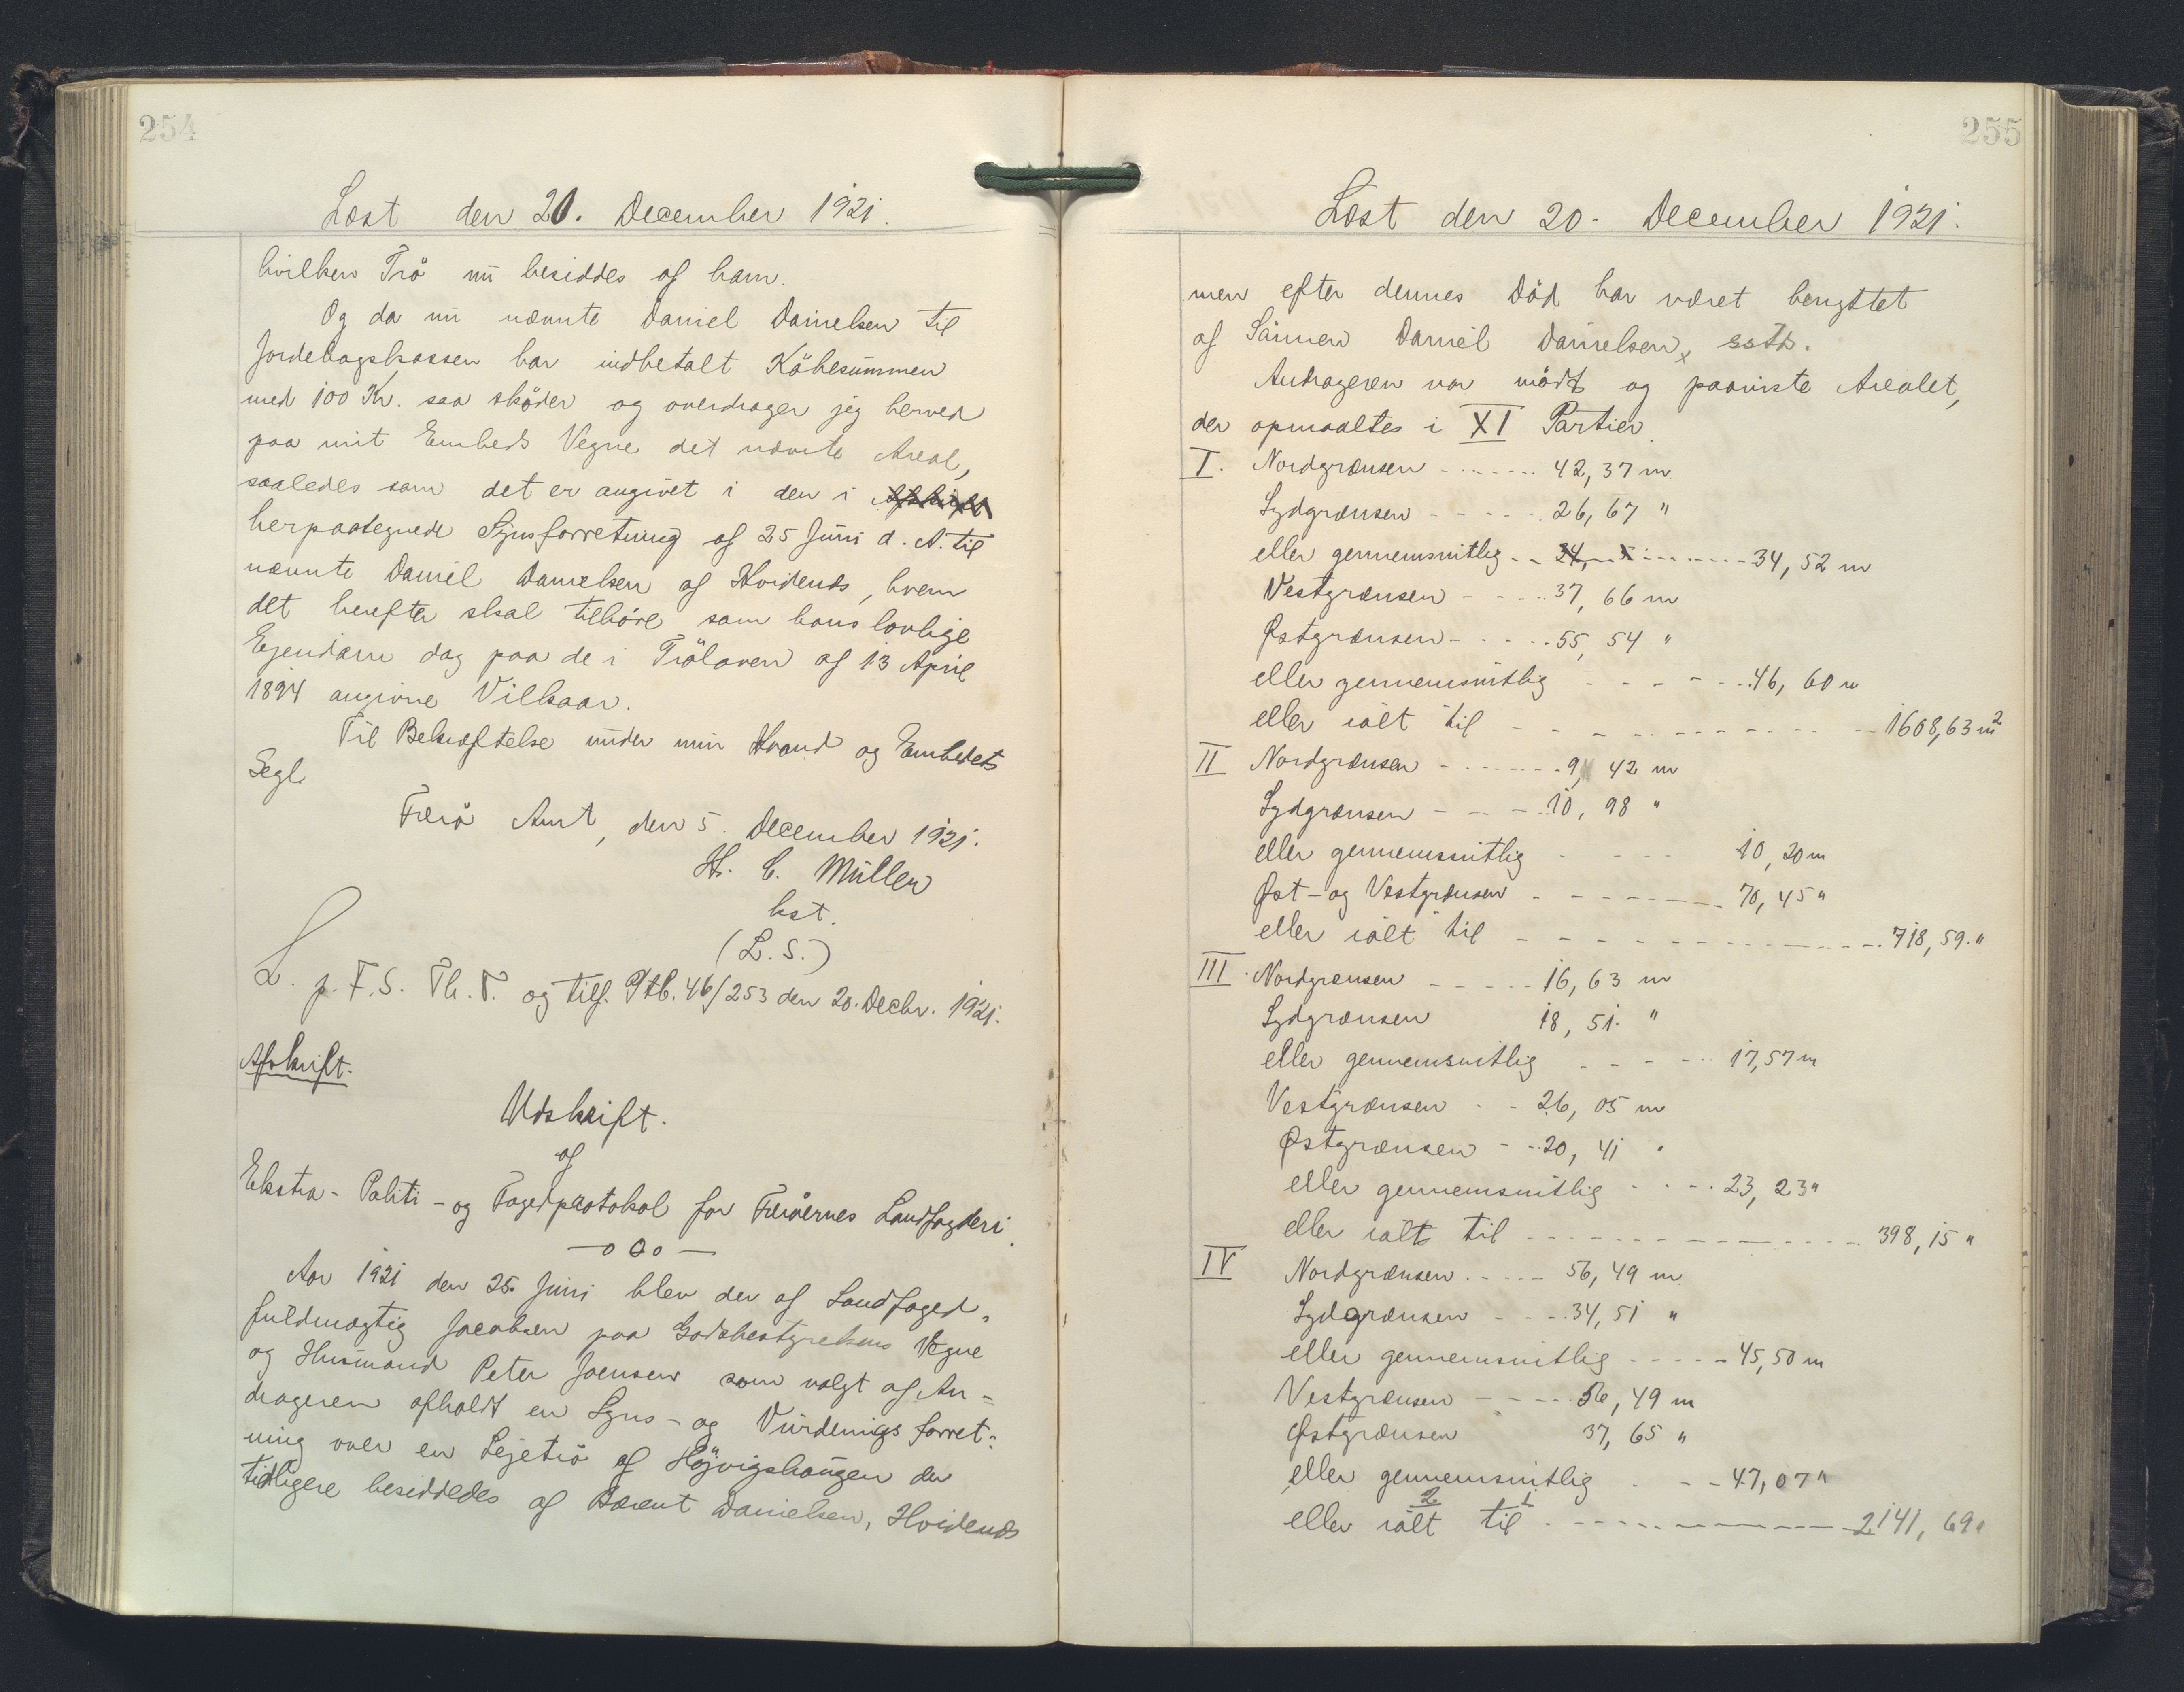 254
Læst den 20. December 1921.
hvilken Trö nu besiddes af ham.
Og da nu nævnte Daniel Danielsen til
Jordebogskassen har indbetalt Köbesummen
med 100 Kr. saa sköder og overdrager jeg herved
paa mit Embeds Vegne det nævnte Areal,
saaledes som det er angivet i den i Afskrift
herpaategnede Synsforretning af 25 Juni d. A. til
nævnte Daniel Danielsen af Hvidenæs, hvem
det herefter skal tilhöre som hans lovlige
Ejendom dog paa de i Tröloven af 13 April
1894 angivne Vilkaar.
Til Bekræftelse under min Haand og Embedets
Segl.
Færö Amt, den 5. December 1921.
H. C. Müller
kst.
(L. S.)
L. p. F. S. Th. T. og tilf. Ptb. 46/253 den 20. Decbr. 1921.
Afskrift.
Udskrift.
af
Ekstra- Politi- og Fogedprotokol for Færöernes Landfogderi.
—o O o—
Aar 1921 den 25. Juni blev der af Landfoged-
fuldmægtig Jacobsen paa Godsbestyrelsens Vegne
og Husmand Peter Joensen som valgt af An-
drageren afholdt en Syns- og Vurderings forret-
ning over en Lejetrö af Höjvigshaugen der
tidligere besiddedes af Berent Danielsen, Hvidenæs
255
Læst den 20. December 1921.
men efter dennes Död har været benyttet
af Sönnen Daniel Danielsen, sstds.
Andrageren var mödt og paaviste Arealet,
der opmaaltes i XI Partier.
I. Nordgrænsen - - - - - 42,37 m.
Sydgrænsen - - - - - 26,67 "
eller gennemsnitlig - - 34,5 - - - - - 34,52 m
Vestgrænsen - - - - 37,66 m
Østgrænsen - - - - 55,54 "
eller gennemsnitlig - - - - - 46,60 m
eller ialt til - - - - - - - - - 1608,63 m2
II Nordgrænsen - - - - - 9,42 m
Sydgrænsen - - - 10,98 "
eller gennemsnitlig - - - - 10,20 m
Øst- og Vestgrænsen - - - - - - 70,45 "
eller ialt til - - - - - - - - - 718,59. "
III. Nordgrænsen - - - - 16,63 m
Sydgrænsen 18,51. "
eller gennemsnitlig - - - - 17,57 m
Vestgrænsen - - 26,05 m
Østgrænsen - - 20,41 "
eller gennemsnitlig - - - - 23,23 "
eller ialt til - - - - - - - - - 398,15 "
IV Nordgrænsen - - - - 56,49 m.
Sydgrænsen - - - - 34,51 "
eller gennemsnitlig - - - - - 45,50 m
Vestgrænsen - - - - 56,49 m
Østgrænsen 37,65 "
eller gennemsnitlig - - - 47,07 "
2 1
eller ialt til - - - - - - - - - 2141,69 "